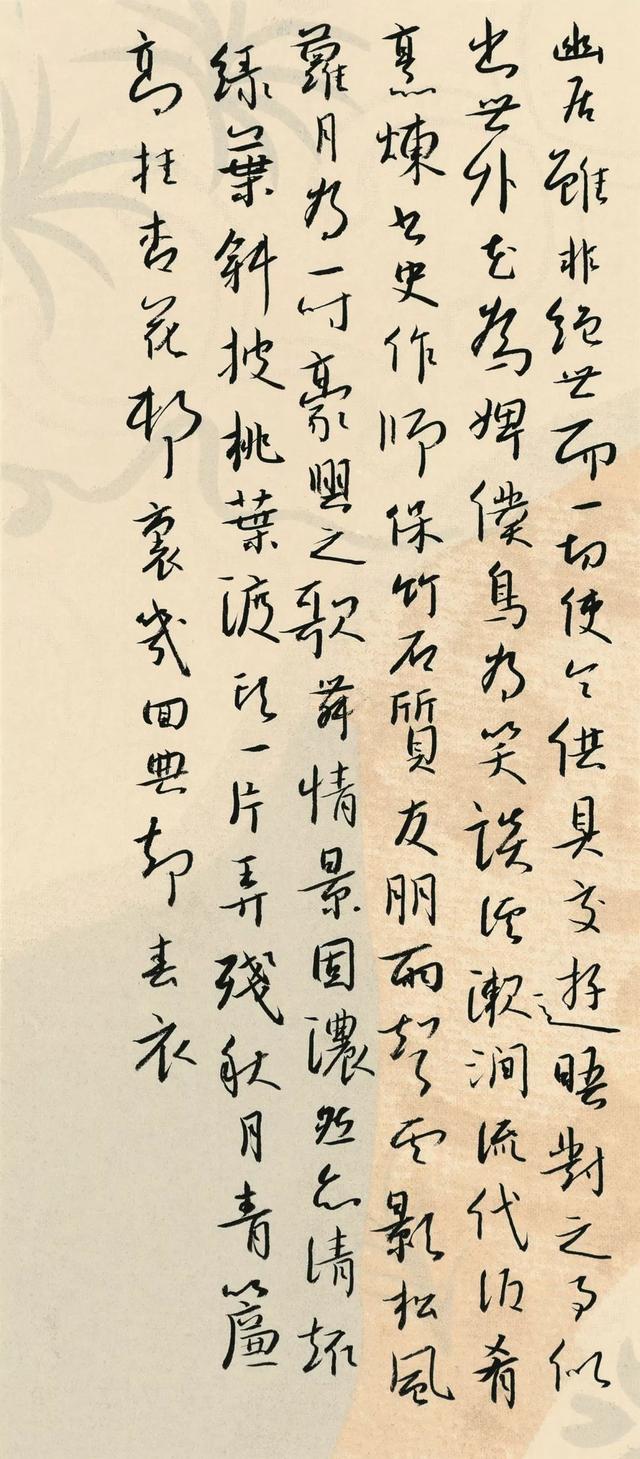 幽居雖非絕世而一切使令供具交遊晤對之事似
出世外花為婢僕鳥為笑談溪漱澗流代酒肴
烹煉書史作師保竹石質友朋雨聲雲影松風
蘿月為一時豪興之歌舞情景固濃然亦清趣
綠葉斜披桃葉渡頭一片弄殘秋月青簾
高挂杏花邨裏幾回典却春衣